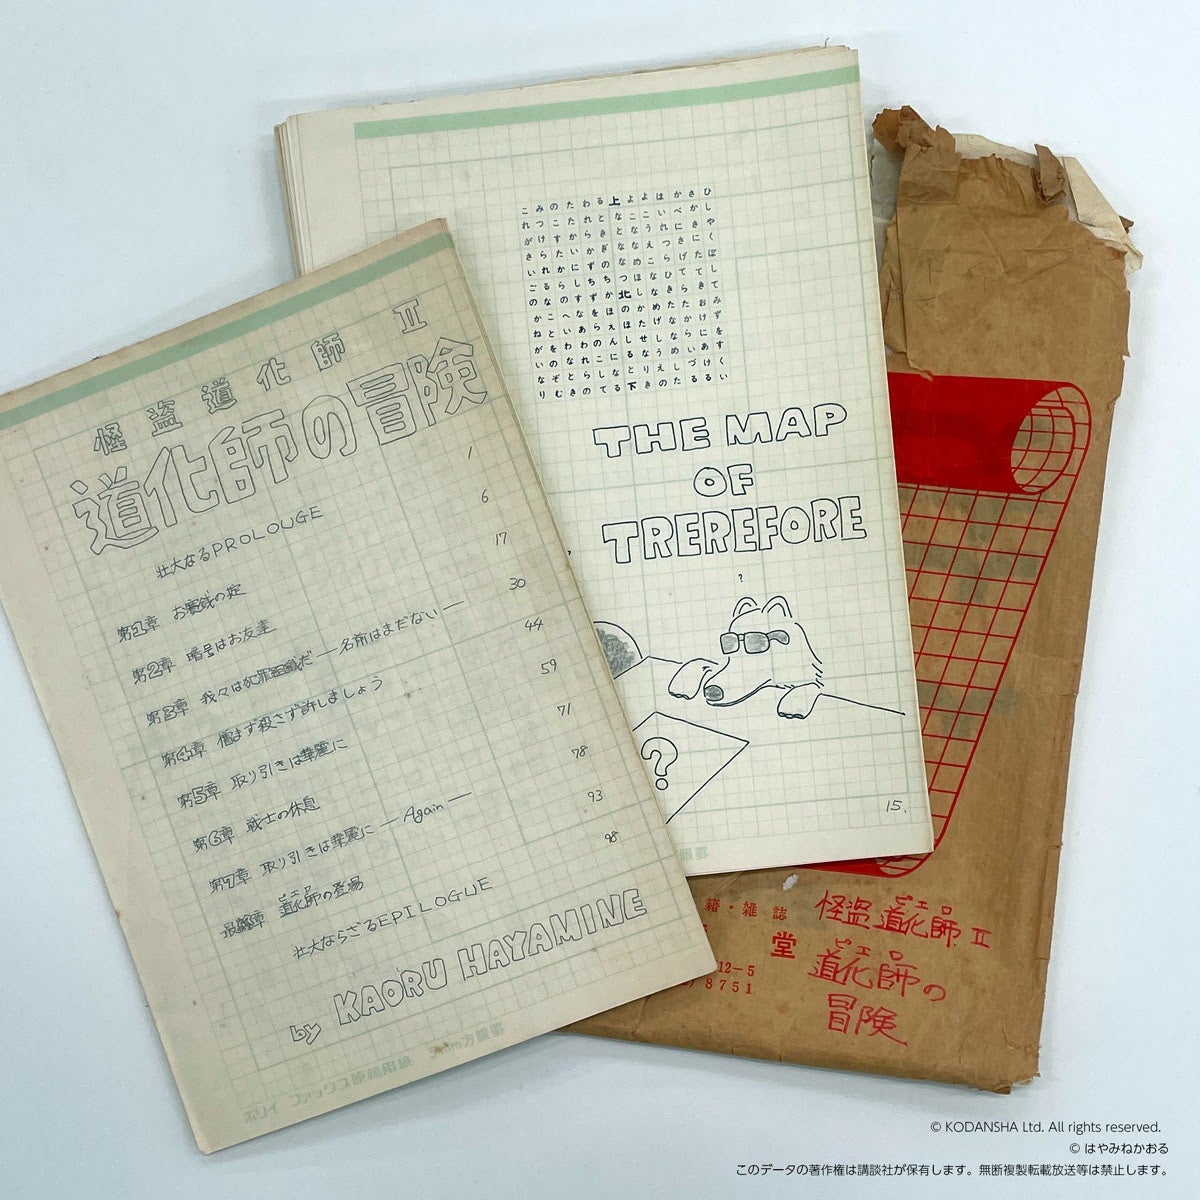 怪盗道化師 Ⅱ
道化師の冒険
壮大なるPROLOUGE 1
第1章 お賽銭の掟 6
第2章 暗号はお友達 17
第3章 我々は犯罪組織だ ― 名前はまだない ― 30
第4章 憎まず殺さず許しましょう 44
第5章 取り引きは華麗に 59
第6章 戦士の休息 71
第7章 取り引きは華麗に ― Again ― 78
最終章 道化師の登場 93
ピエロ
壮大ならざるEPILOGUE 98
by KAORU HAYAMINE
ホリイ ファックス原稿用紙 5mm方眼罫
ひしやくぼしてみずをすくい
きかきにたてきおけにあける
かべにきげてらたからいづる
はいれつらひきたななめした
よこうえこななめげしうえの
よこななめほしかたせなりき
上なとななつ北のほしると下
るときぎのちかほえんになる
われらかずちずをらのこして
たたかいにしすなあわれらの
のこすたからのへいわなとき
みつけられるなことをのぞむ
これがさいごのかねがいなり
THE MAP
OF
TREREFORE
?
?
15.
眼罫
籍・雑誌
堂
12-5
8751
怪盗道化師Ⅱ
ピエロ
道化師の
ピエロ
冒険
© KODANSHA Ltd. All rights reserved.
© はやみねかおる
このデータの著作権は講談社が保有します。無断複製転載放送等は禁止します。